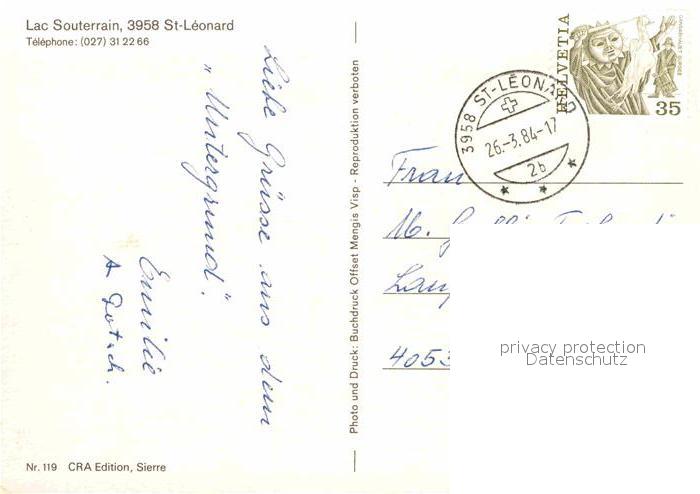 Lac Souterrain, 3958 St-Léonard
Téléphone: (027) 31 22 66
Liebe Grüsse aus dem
„Untergrund".
Emilie
Photo und Druck: Buchdruck Offset Mengis Visp - Reproduktion verboten
HELVETIA
35
3958 ST-LÉONARD
26.-3.84-17
2b
Frau
M.
4053
privacy protection
Datenschutz
Nr. 119 CRA Edition, Sierre